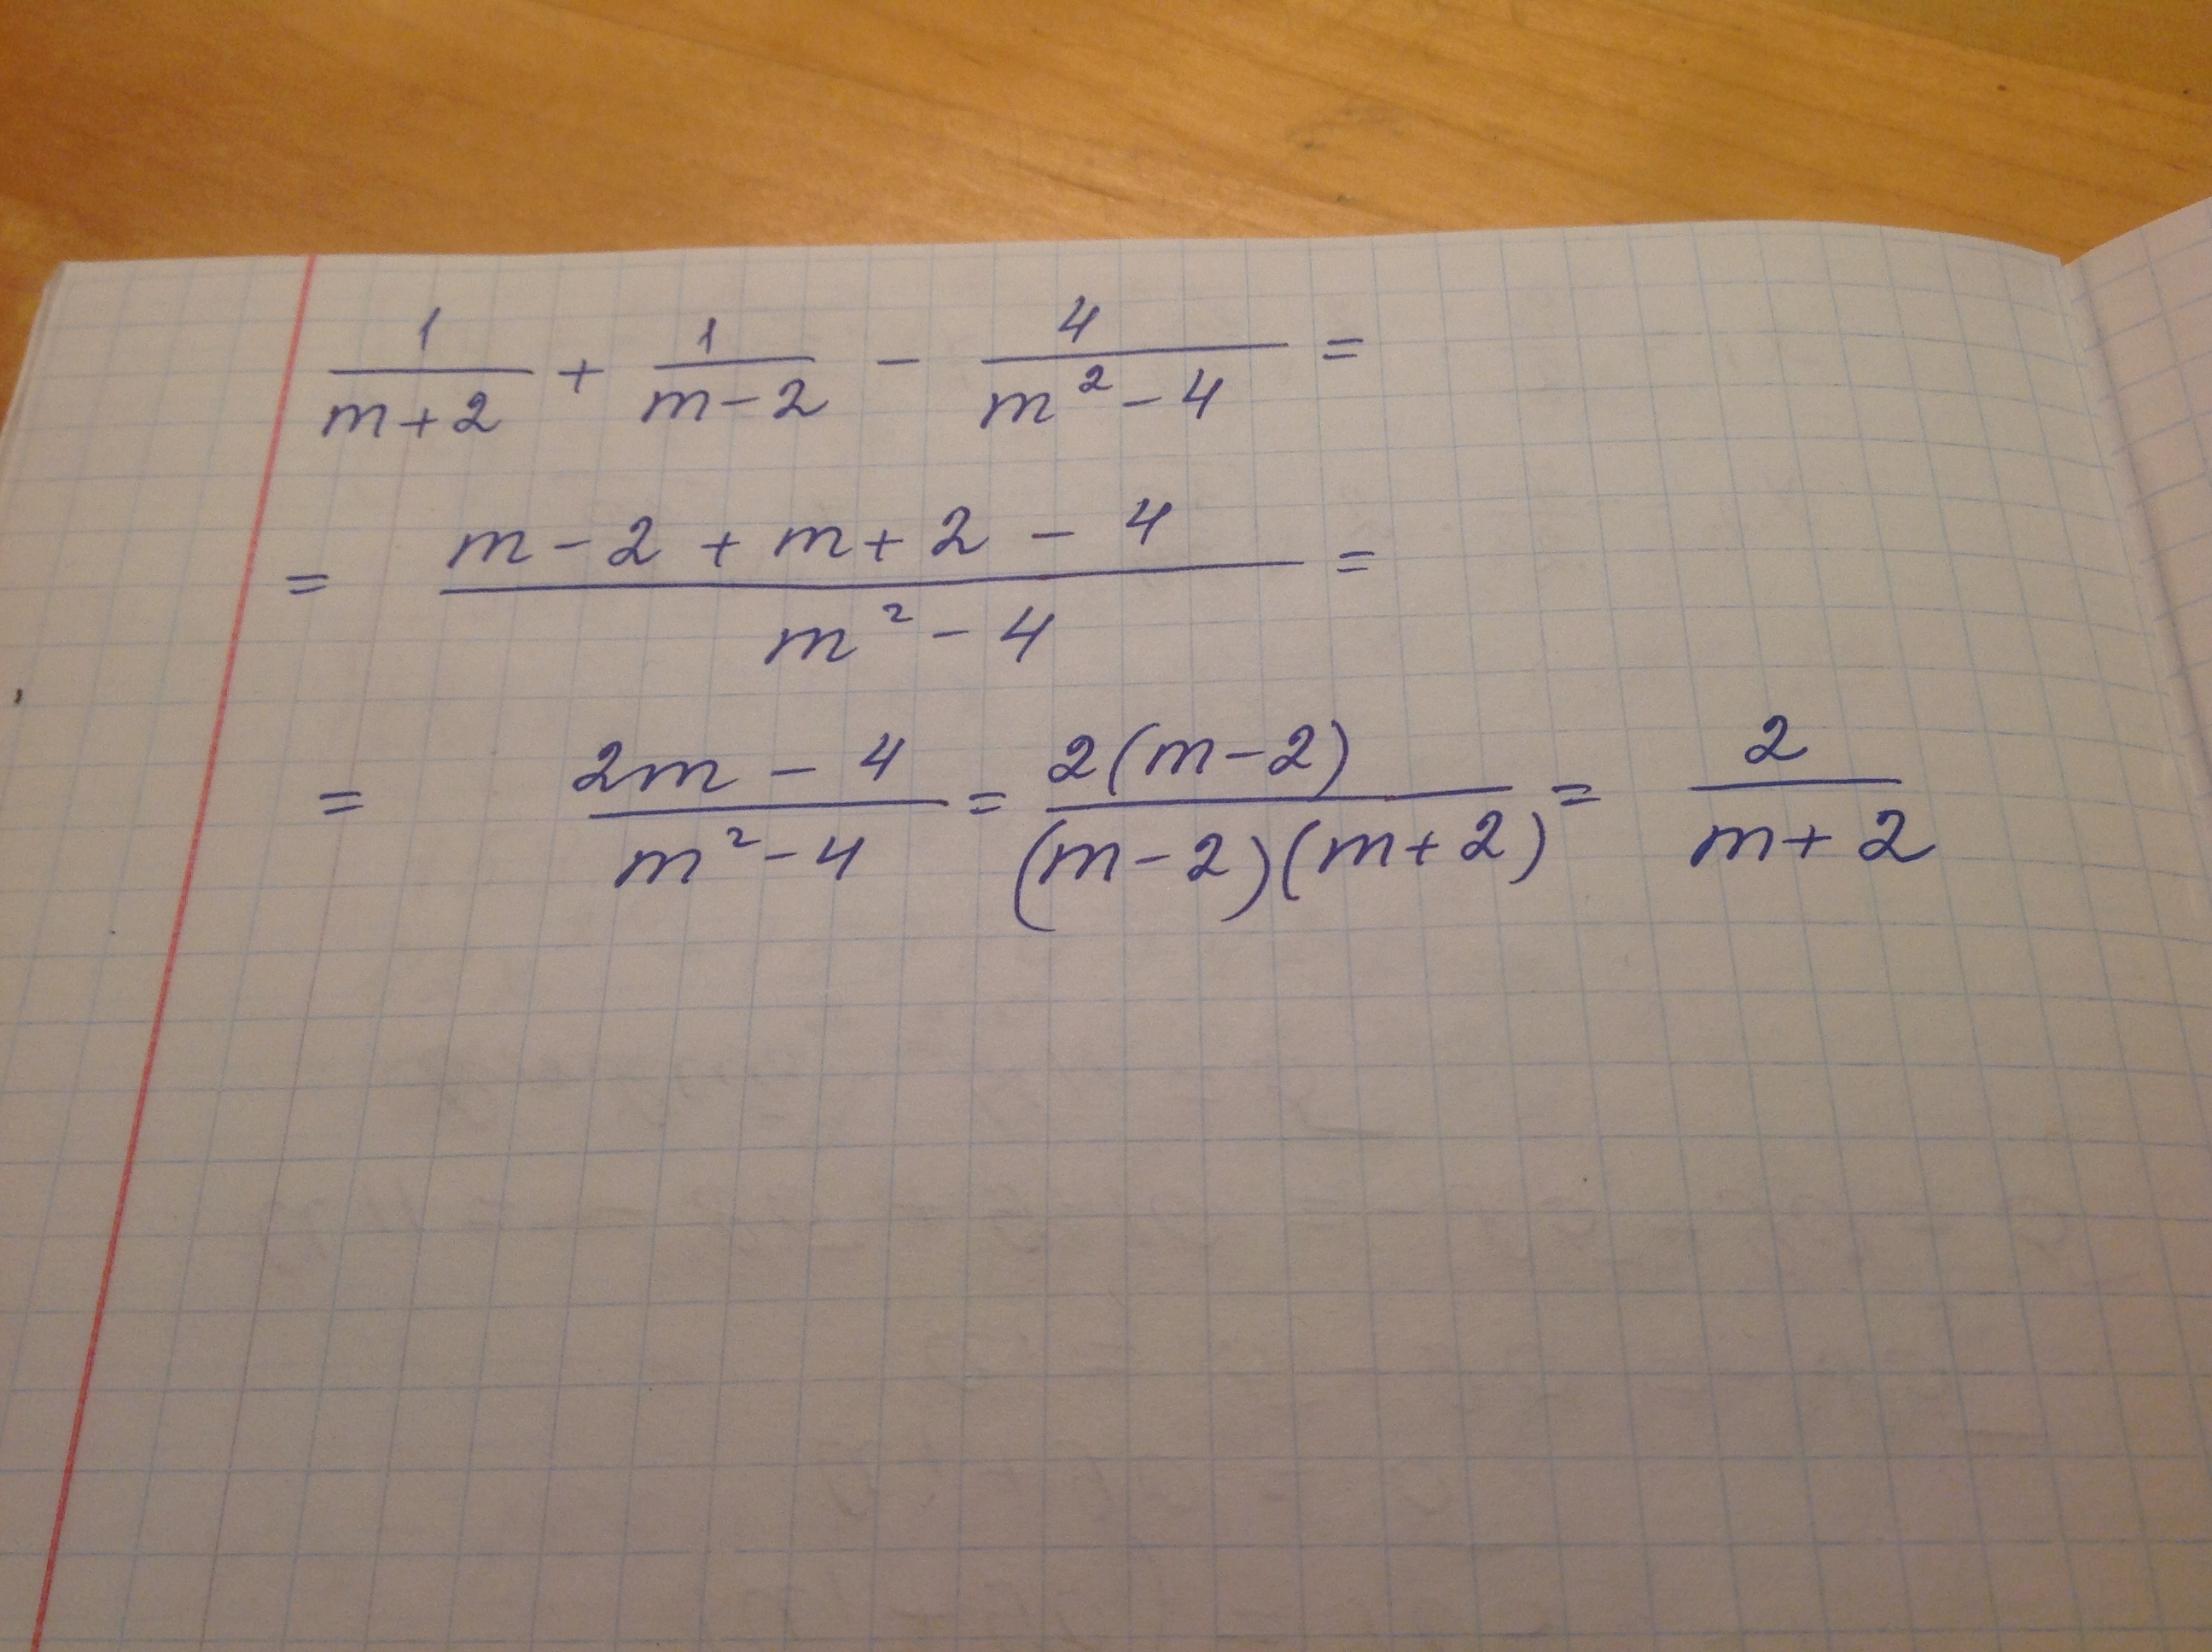 1/(m+2) + 1/(m-2) - 4/(m²-4) =
= (m-2+m+2-4)/(m²-4) =
= (2m-4)/(m²-4) = 2(m-2)/((m-2)(m+2)) = 2/(m+2)